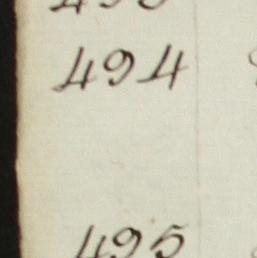 494
495